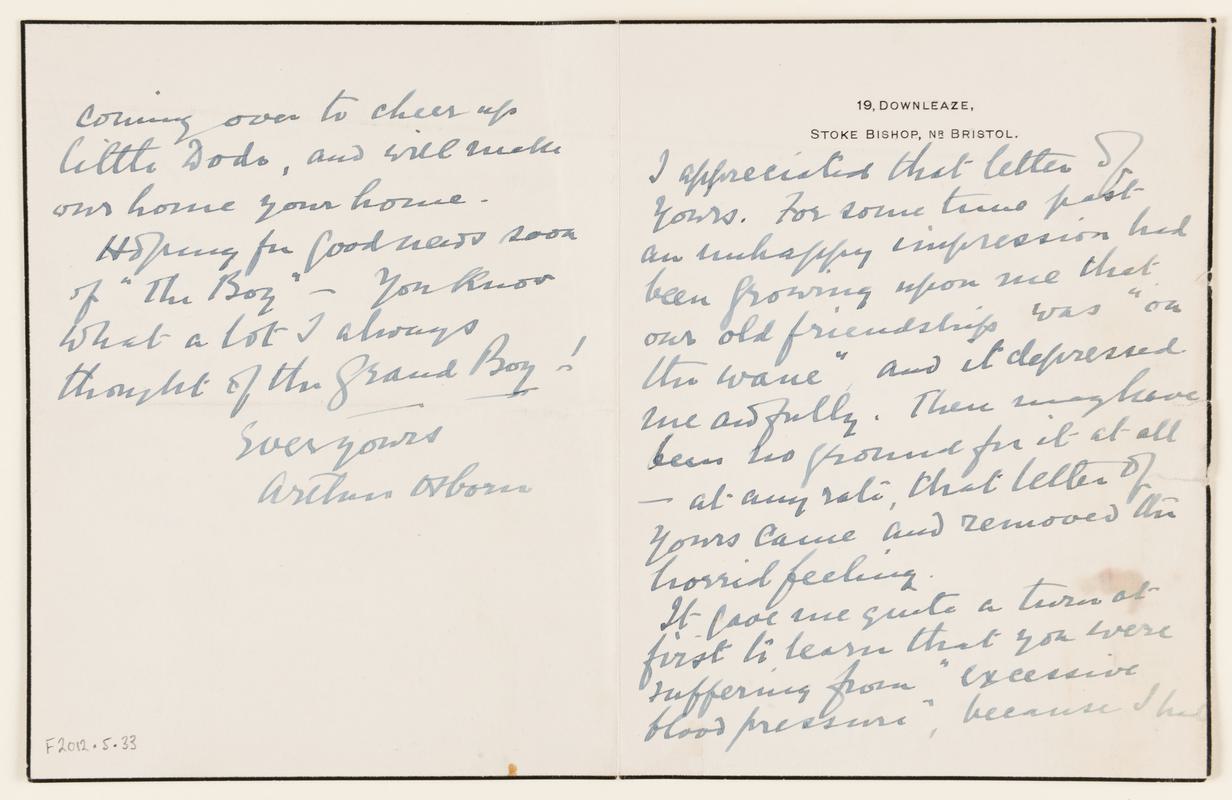 coming over to cheer up
little Dodo, and will make
our home your home.
Hoping for good news soon
of "The Boy" — You know
what a lot I always
thought of the Grand Boy!
Ever yours
Arthur Osborn
F2012.5.33
19, DOWNLEAZE,
STOKE BISHOP, NR BRISTOL.
I appreciated that letter of
yours. For some time past
an unhappy impression had
been growing upon me that
our old friendship was "on
the wane" and it depressed
me awfully. There may have
been no ground for it at all
— at any rate, that letter of
yours came and removed the
horrid feeling.
It gave me quite a turn at
first to learn that you were
suffering from "excessive
blood pressure", because I had